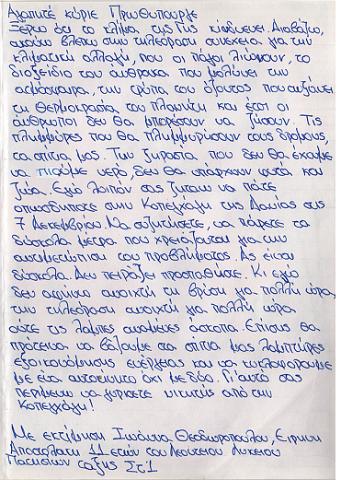 Αγαπητέ κύριε Πρωθυπουργε
Ξέρω ότι το κλίμα της Γης κινδυνεύει. Διαβάζω,
ακούω βλέπω στην τηλεόραση συνέχεια για την
κλιματική αλλαγή, που οι πάγοι λιώνουν, το
διοξείδιο του άνθρακα που μολύνει την
ατμόσφαιρα, την τρύπα του όζοντος που αυξάνει
τη θερμοκρασία του πλανήτη και έτσι οι
άνθρωποι δεν θα μπορέσουν να ζήσουν. Τις
πλημμύρες που θα πλημμυρίσουν τους δρόμους,
τα σπίτια μας. Την ξηρασία που δεν θα έχουμε
να πιούμε νερό, δεν θα υπάρχουν φυτά και
ζώα. Εγώ λοιπόν σας ζηταω να πάτε
οπωσδήποτε στην Κοπεγχάγη της Δανίας στις
7 Δεκεμβρίου. Να συζητήσετε, να πάρετε τα
δύσκολα μέτρα που χρειάζονται για την
αντιμετώπιση του προβλήματος. Ας είναι
δύσκολα. Δεν πειράζει προσπαθήστε. Κι εγώ
δεν αφήνω ανοιχτή τη βρύση για πολλή ώρα,
την τηλεόραση ανοιχτή για πολλή ώρα
ούτε τις λάμπες αναμένες άσκοπα. Επίσης θα
πρότεινα να βάζουμε στα σπίτια μας λαμπτήρες
εξοικονόμησης ενέργειας και να κυκλοφορούμε
με ένα αυτοκίνητο όχι με δύο. Γι'αυτό σας
περιμένω να γυρίσετε νικητής από την
Κοπεγχάγη!
Με εκτίμηση Ιωάννα Θεοδωροπούλου, Ειρήνη
Αποστολάτη 11 ετών του Λεοντείου Λυκείου
Πατησίων τάξης Στ'1